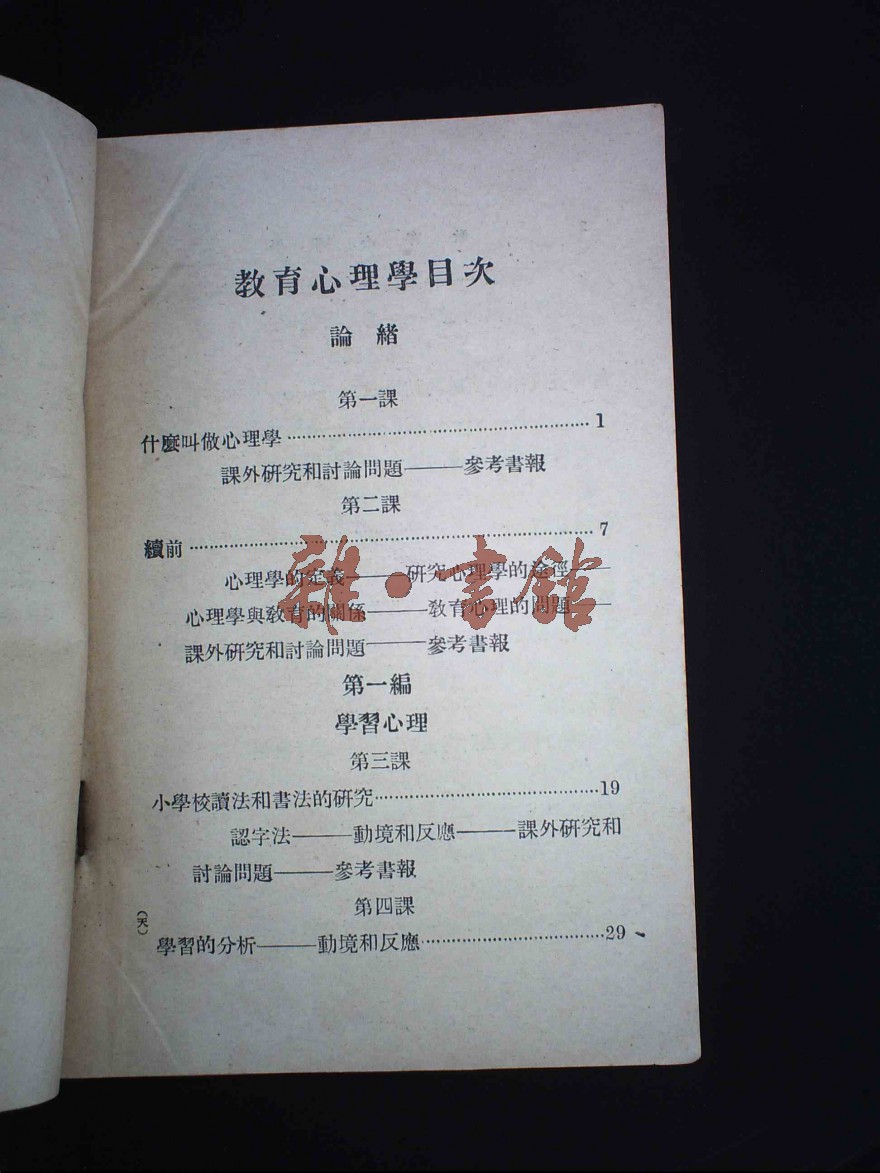 教育心理學目次
論緒
第一課
什麼叫做心理學……………………………………………1
課外研究和討論問題———參考書報
第二課
續前……………………………………………………………7
心理學的定義———研究心理學的途徑——
心理學與教育的關係———教育心理的問題——
課外研究和討論問題———參考書報
第一編
學習心理
第三課
小學校讀法和書法的研究…………………………………19
認字法———動境和反應———課外研究和
討論問題———參考書報
第四課
學習的分析———動境和反應……………………………29
(天)
雜·書館